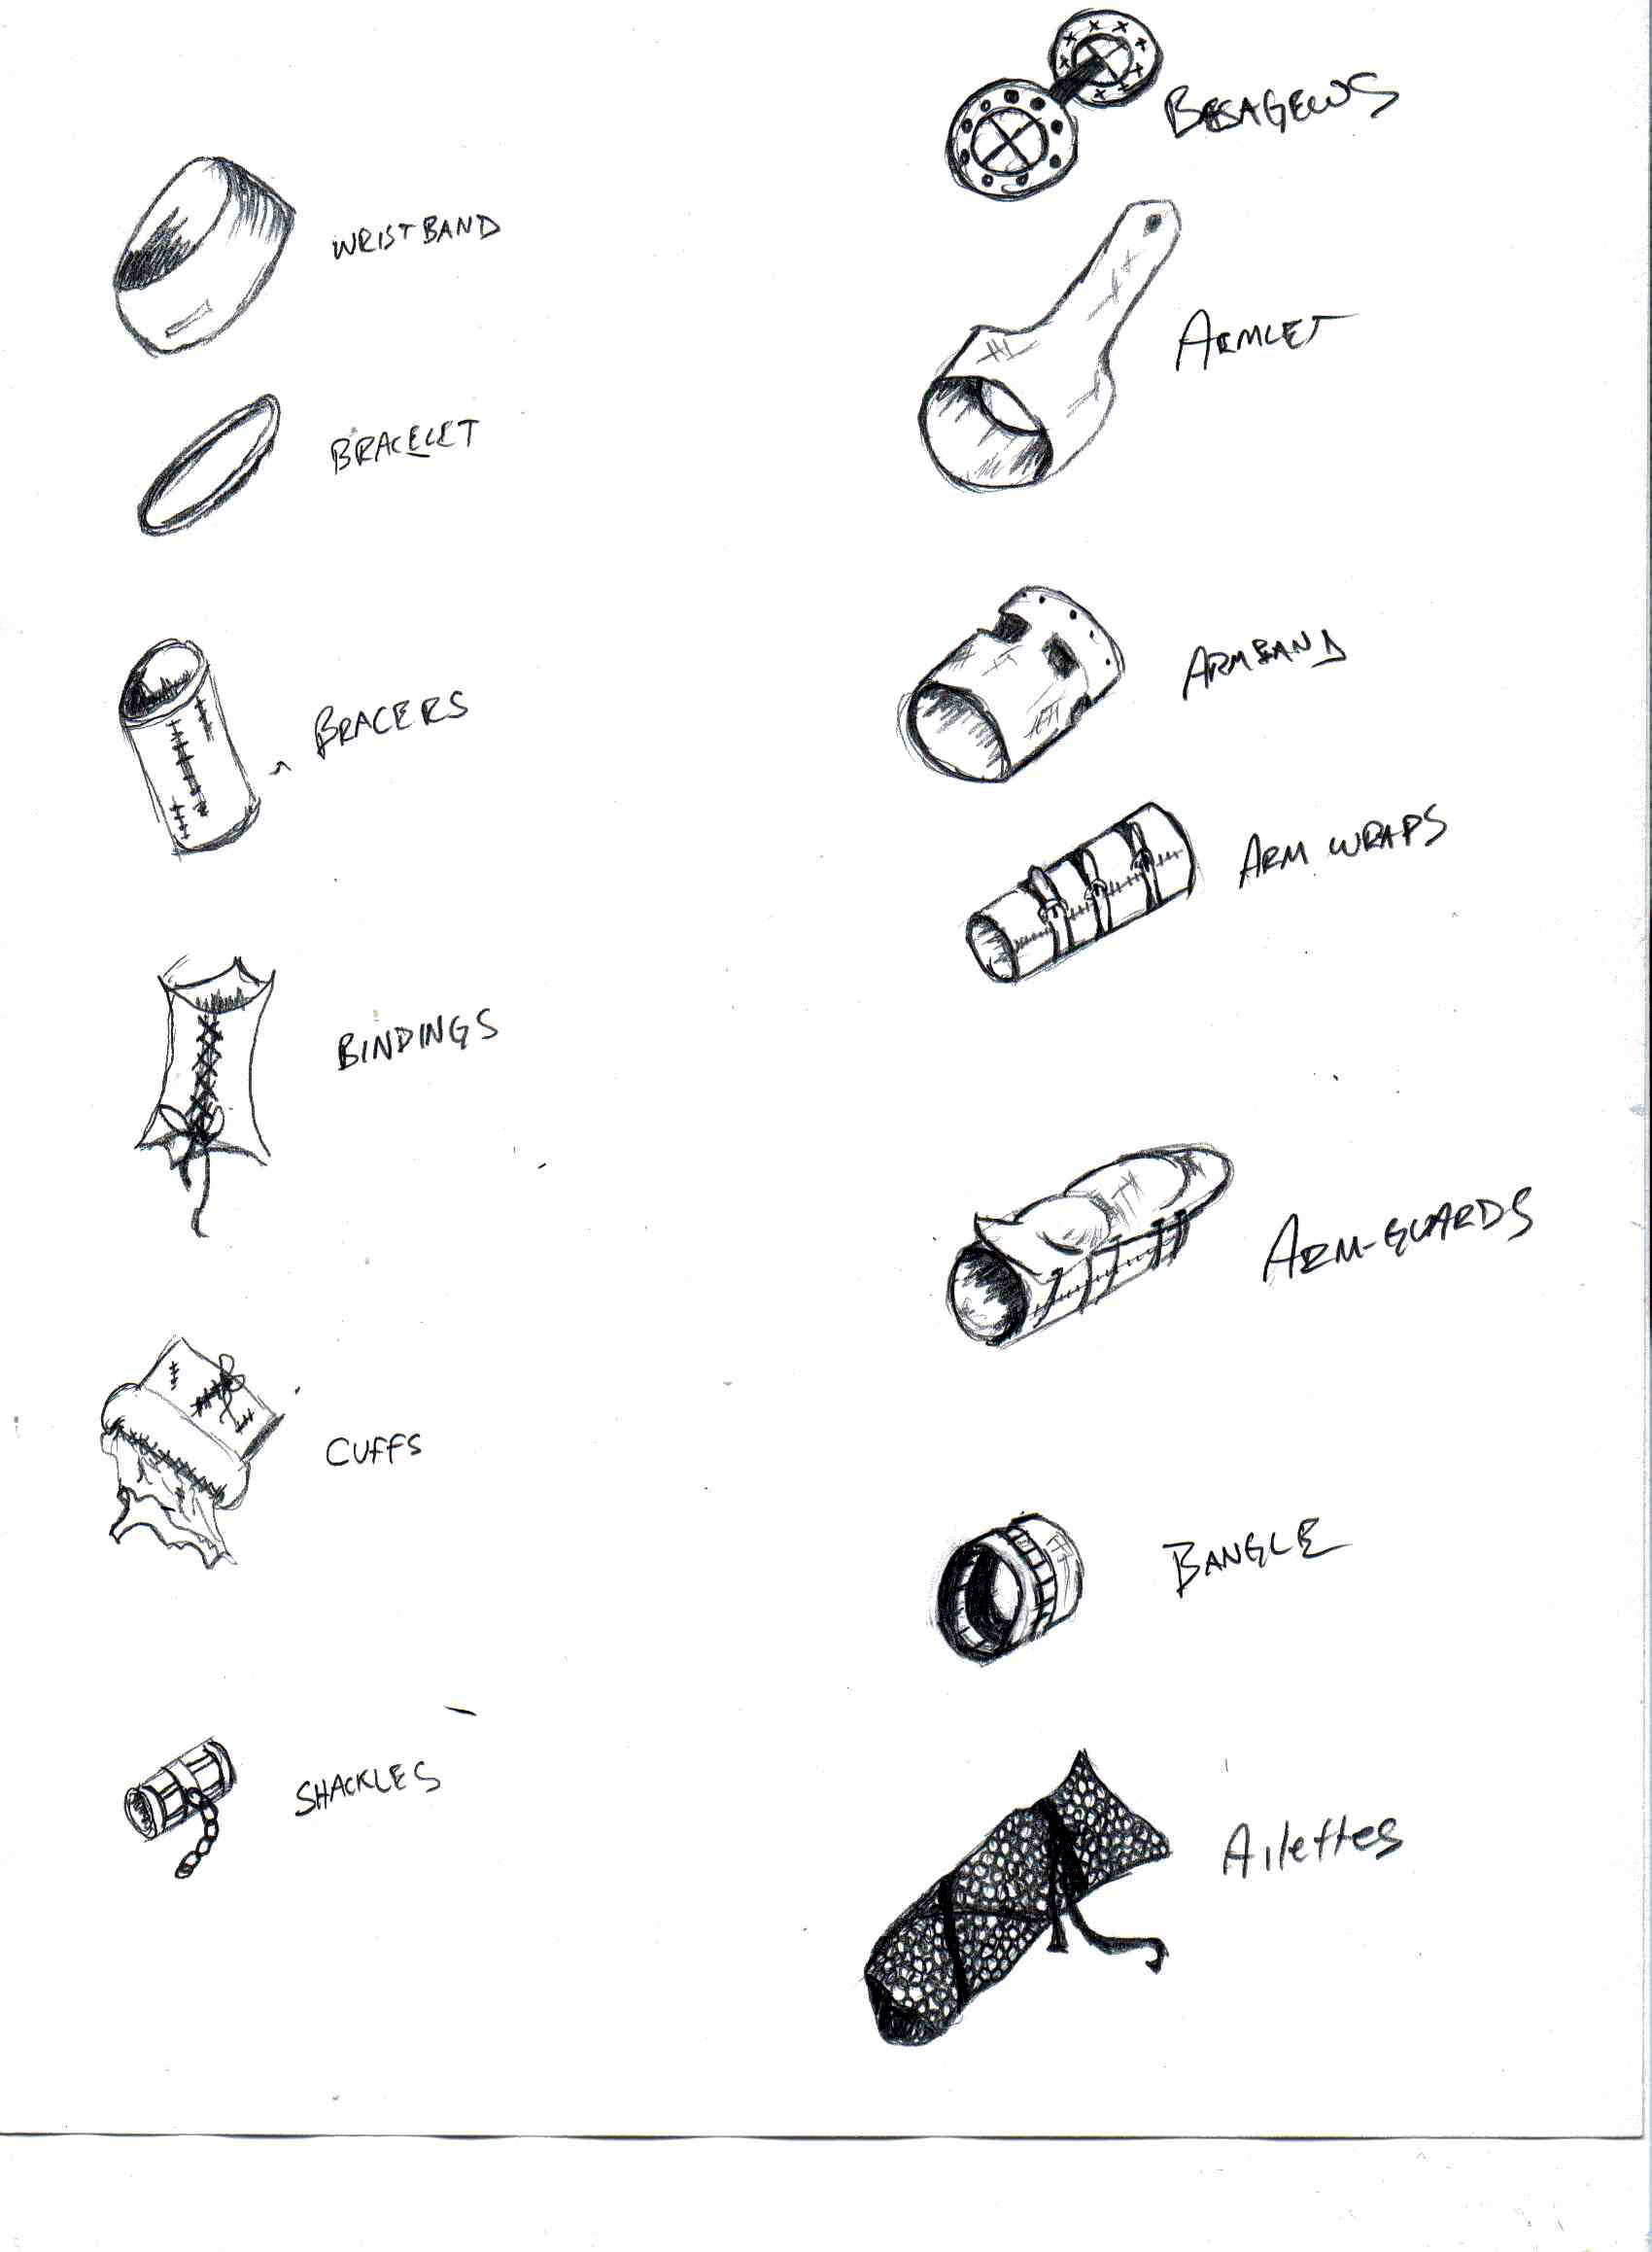 WRISTBAND
BRACELET
BRACERS
BINDINGS
CUFFS
SHACKLES
BESAGEWS
ARMLET
ARMBAND
ARM WRAPS
ARM-GUARDS
BANGLE
Ailettes